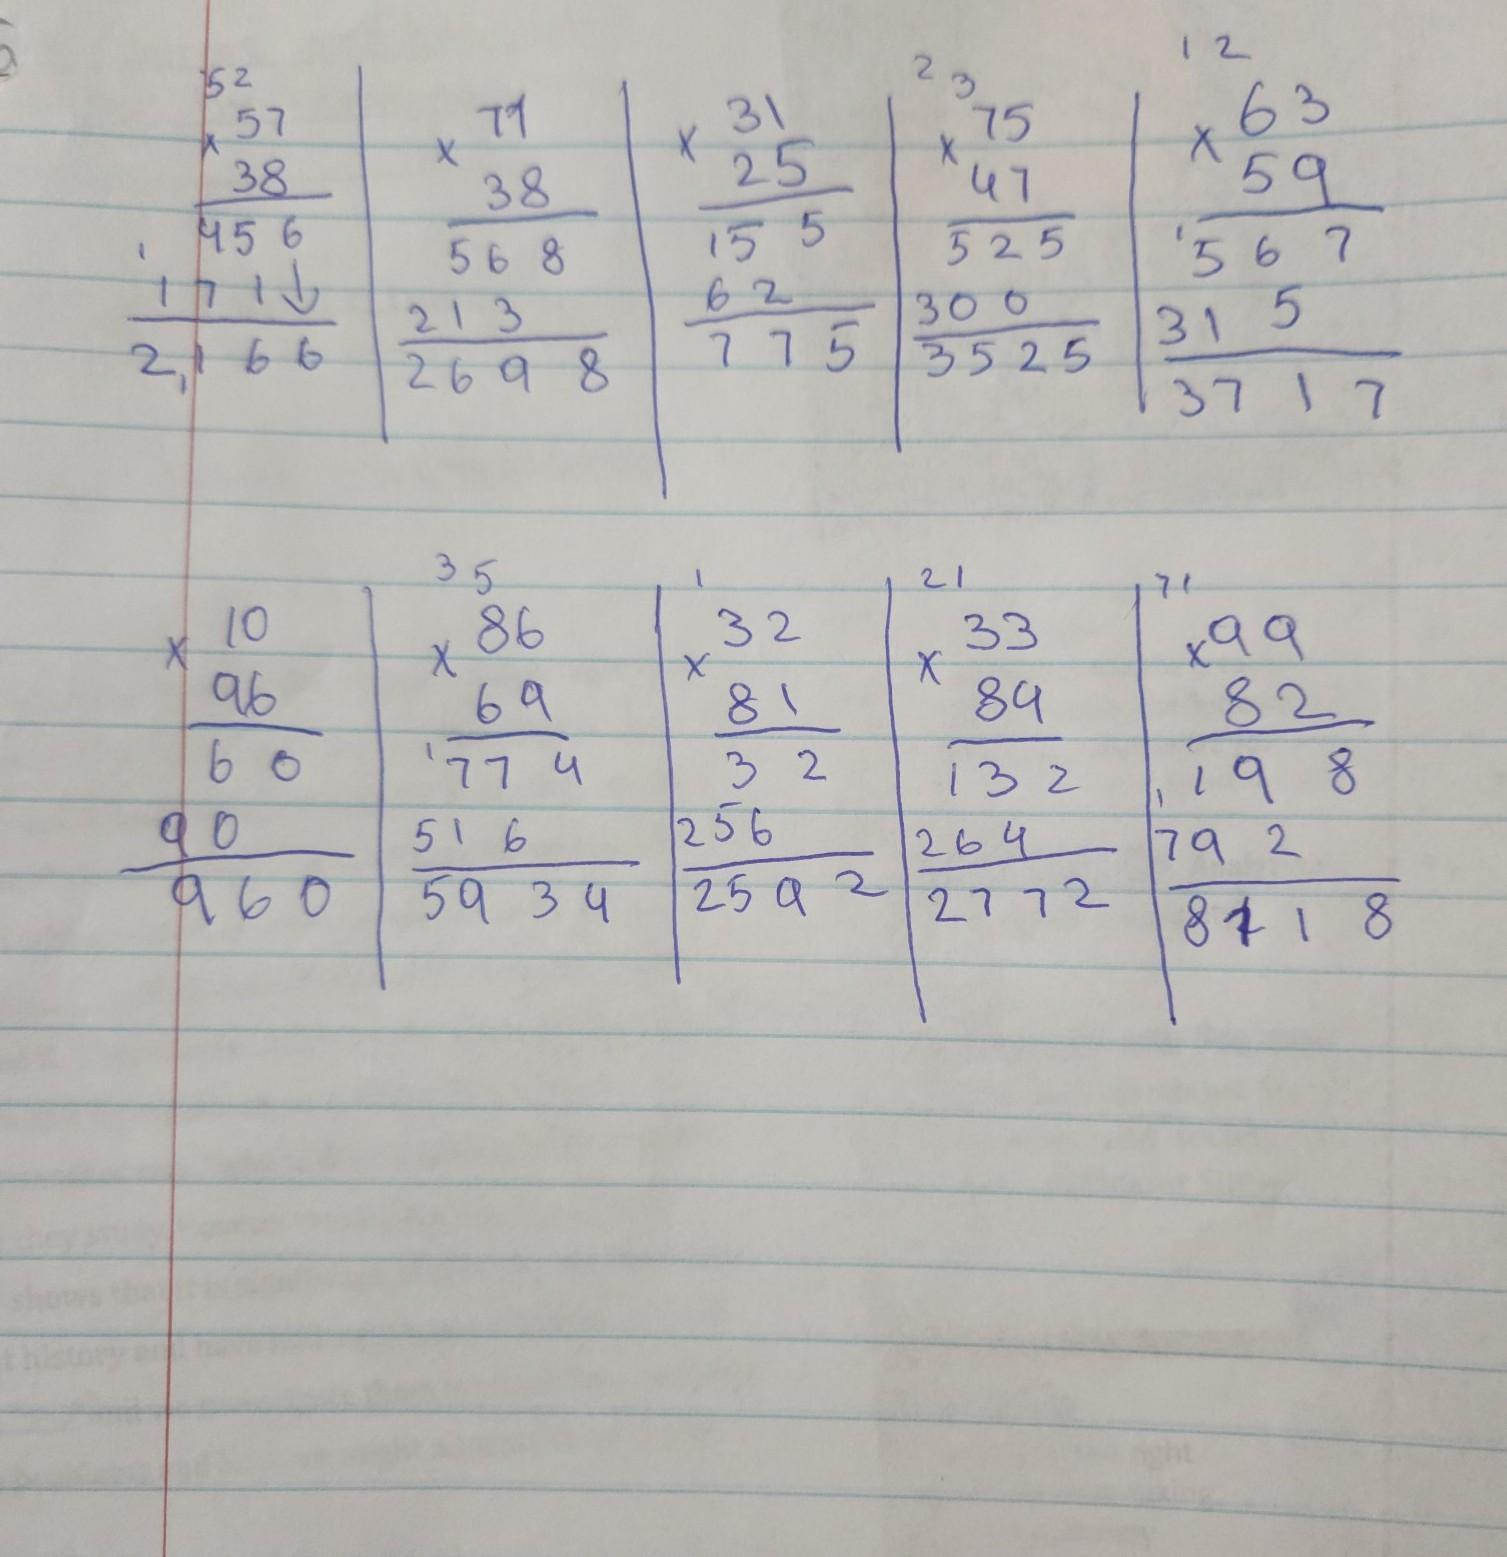 52
57
× 38
456
1
171↓
2,166
71
× 38
568
213
2698
31
× 25
155
62
775
2 3
75
× 47
525
300
3525
1 2
63
× 59
1
567
315
3717
10
× 96
60
90
960
3 5
86
× 69
1
774
516
5934
1
32
× 81
32
256
2592
21
33
× 84
132
264
2772
71
× 99
82
198
1
792
8118